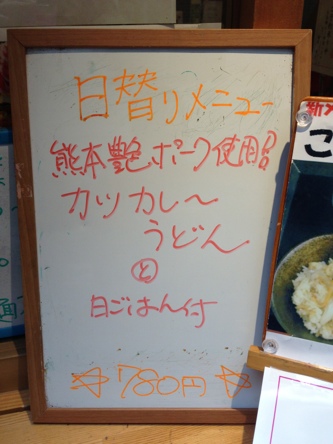 日替りメニュー
熊本艶ポーク使用
カツカレー
うどん
と
白ごはん付
☆780円☆
こ